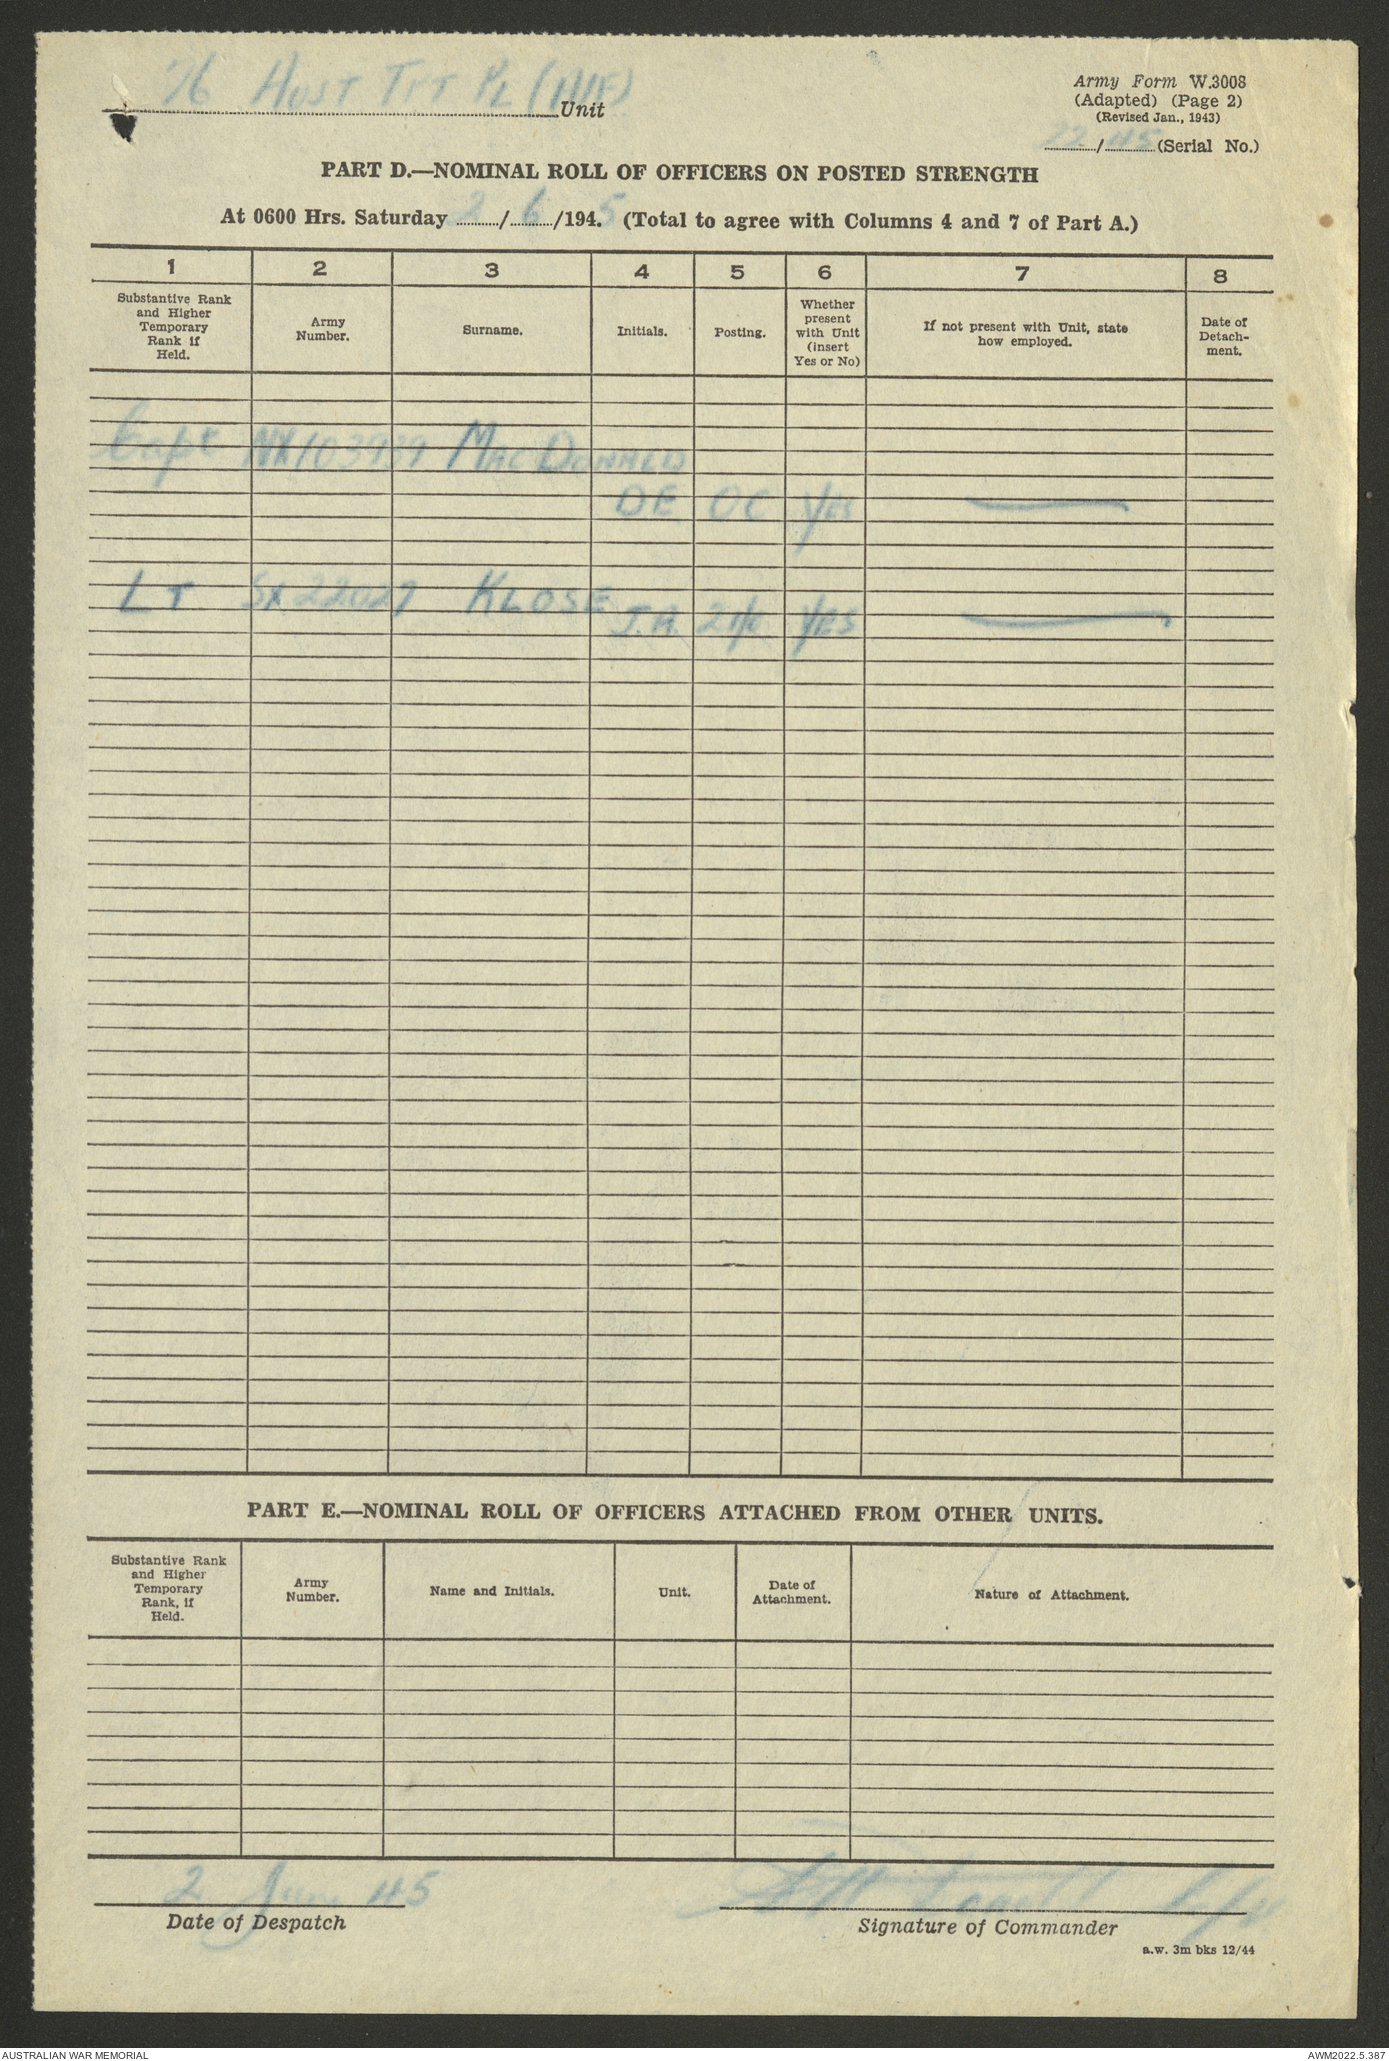 76 AUST TPT PL (AIF) Unit
Army Form W.3008
(Adapted) (Page 2)
(Revised Jan., 1943)
22/45 (Serial No.)
PART D.—NOMINAL ROLL OF OFFICERS ON POSTED STRENGTH
At 0600 Hrs. Saturday 2/6/1945. (Total to agree with Columns 4 and 7 of Part A.)
1 2 3 4 5 6 7 8
Substantive Rank and Higher Temporary Rank if Held.
Army Number.
Surname.
Initials.
Posting.
Whether present with Unit (insert Yes or No)
If not present with Unit, state how employed.
Date of Detach-ment.
Capt NX103939 MACDONALD
DE OC YES
LT SX22027 KLOSE
J.A. 2 i/c YES
PART E.—NOMINAL ROLL OF OFFICERS ATTACHED FROM OTHER UNITS.
Substantive Rank and Higher Temporary Rank, if Held.
Army Number.
Name and Initials.
Unit.
Date of Attachment.
Nature of Attachment.
2 June 45
Date of Despatch
Signature of Commander
a.w. 3m bks 12/44
AUSTRALIAN WAR MEMORIAL
AWM2022.5.387